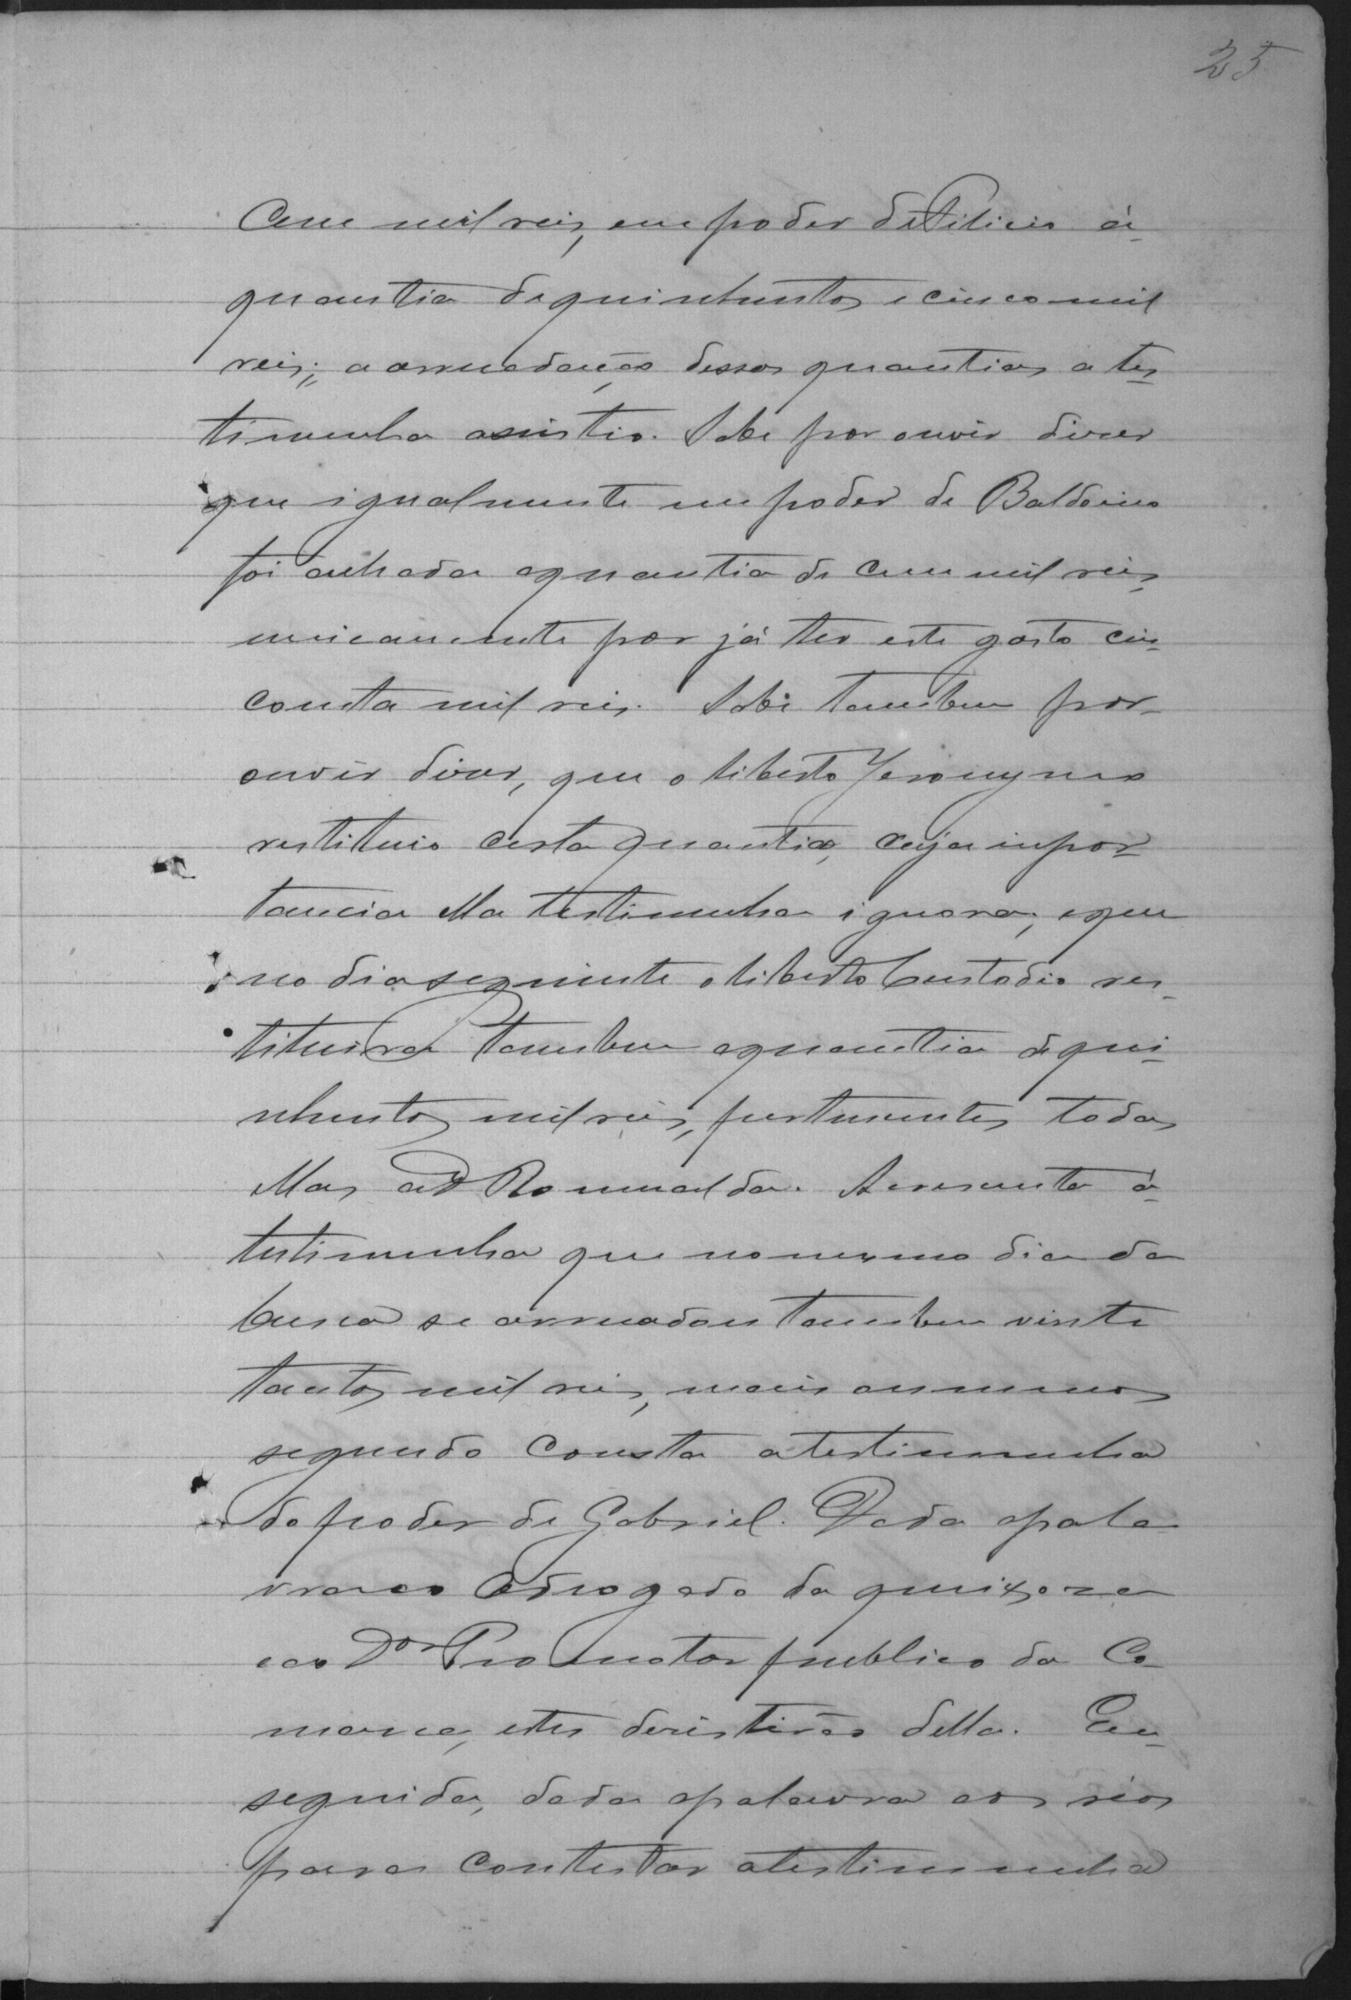 25
Cem mil reis, em poder de Filicio á
quantia de quinhentos e cinco mil
reis; a arrecadação dessas quantias a tes-
timunha assistio. Sabe por ouvir diser
que igualmente em poder de Baldoino
foi achada a quantia de cem mil reis,
unicamente por já ter este gasto cin-
coenta mil reis. Sabe tambem por
ouvir diser, que o liberto Jeronymo
restituio certa quantia, cuja impor-
tancia ella testimunha ignora; e que
no dia seguinte o liberto Custodio res-
tituira tambem a quantia de qui-
nhentos mil reis, pertencentes todas
ellas a D. Romualda. Acrescenta á
testimunha que no mesmo dia da
busca se arrecadou tambem vinte
tantos mil reis, mais ou menos
segundo consta a testimunha
do poder de Gabriel. Dada a pala-
vra ao Advogado da queixosa
e ao Dor Promotor publico da Co-
marca, estes desistirão della. Em
seguida, dada a palavra aos réos
para contestar a testimunha